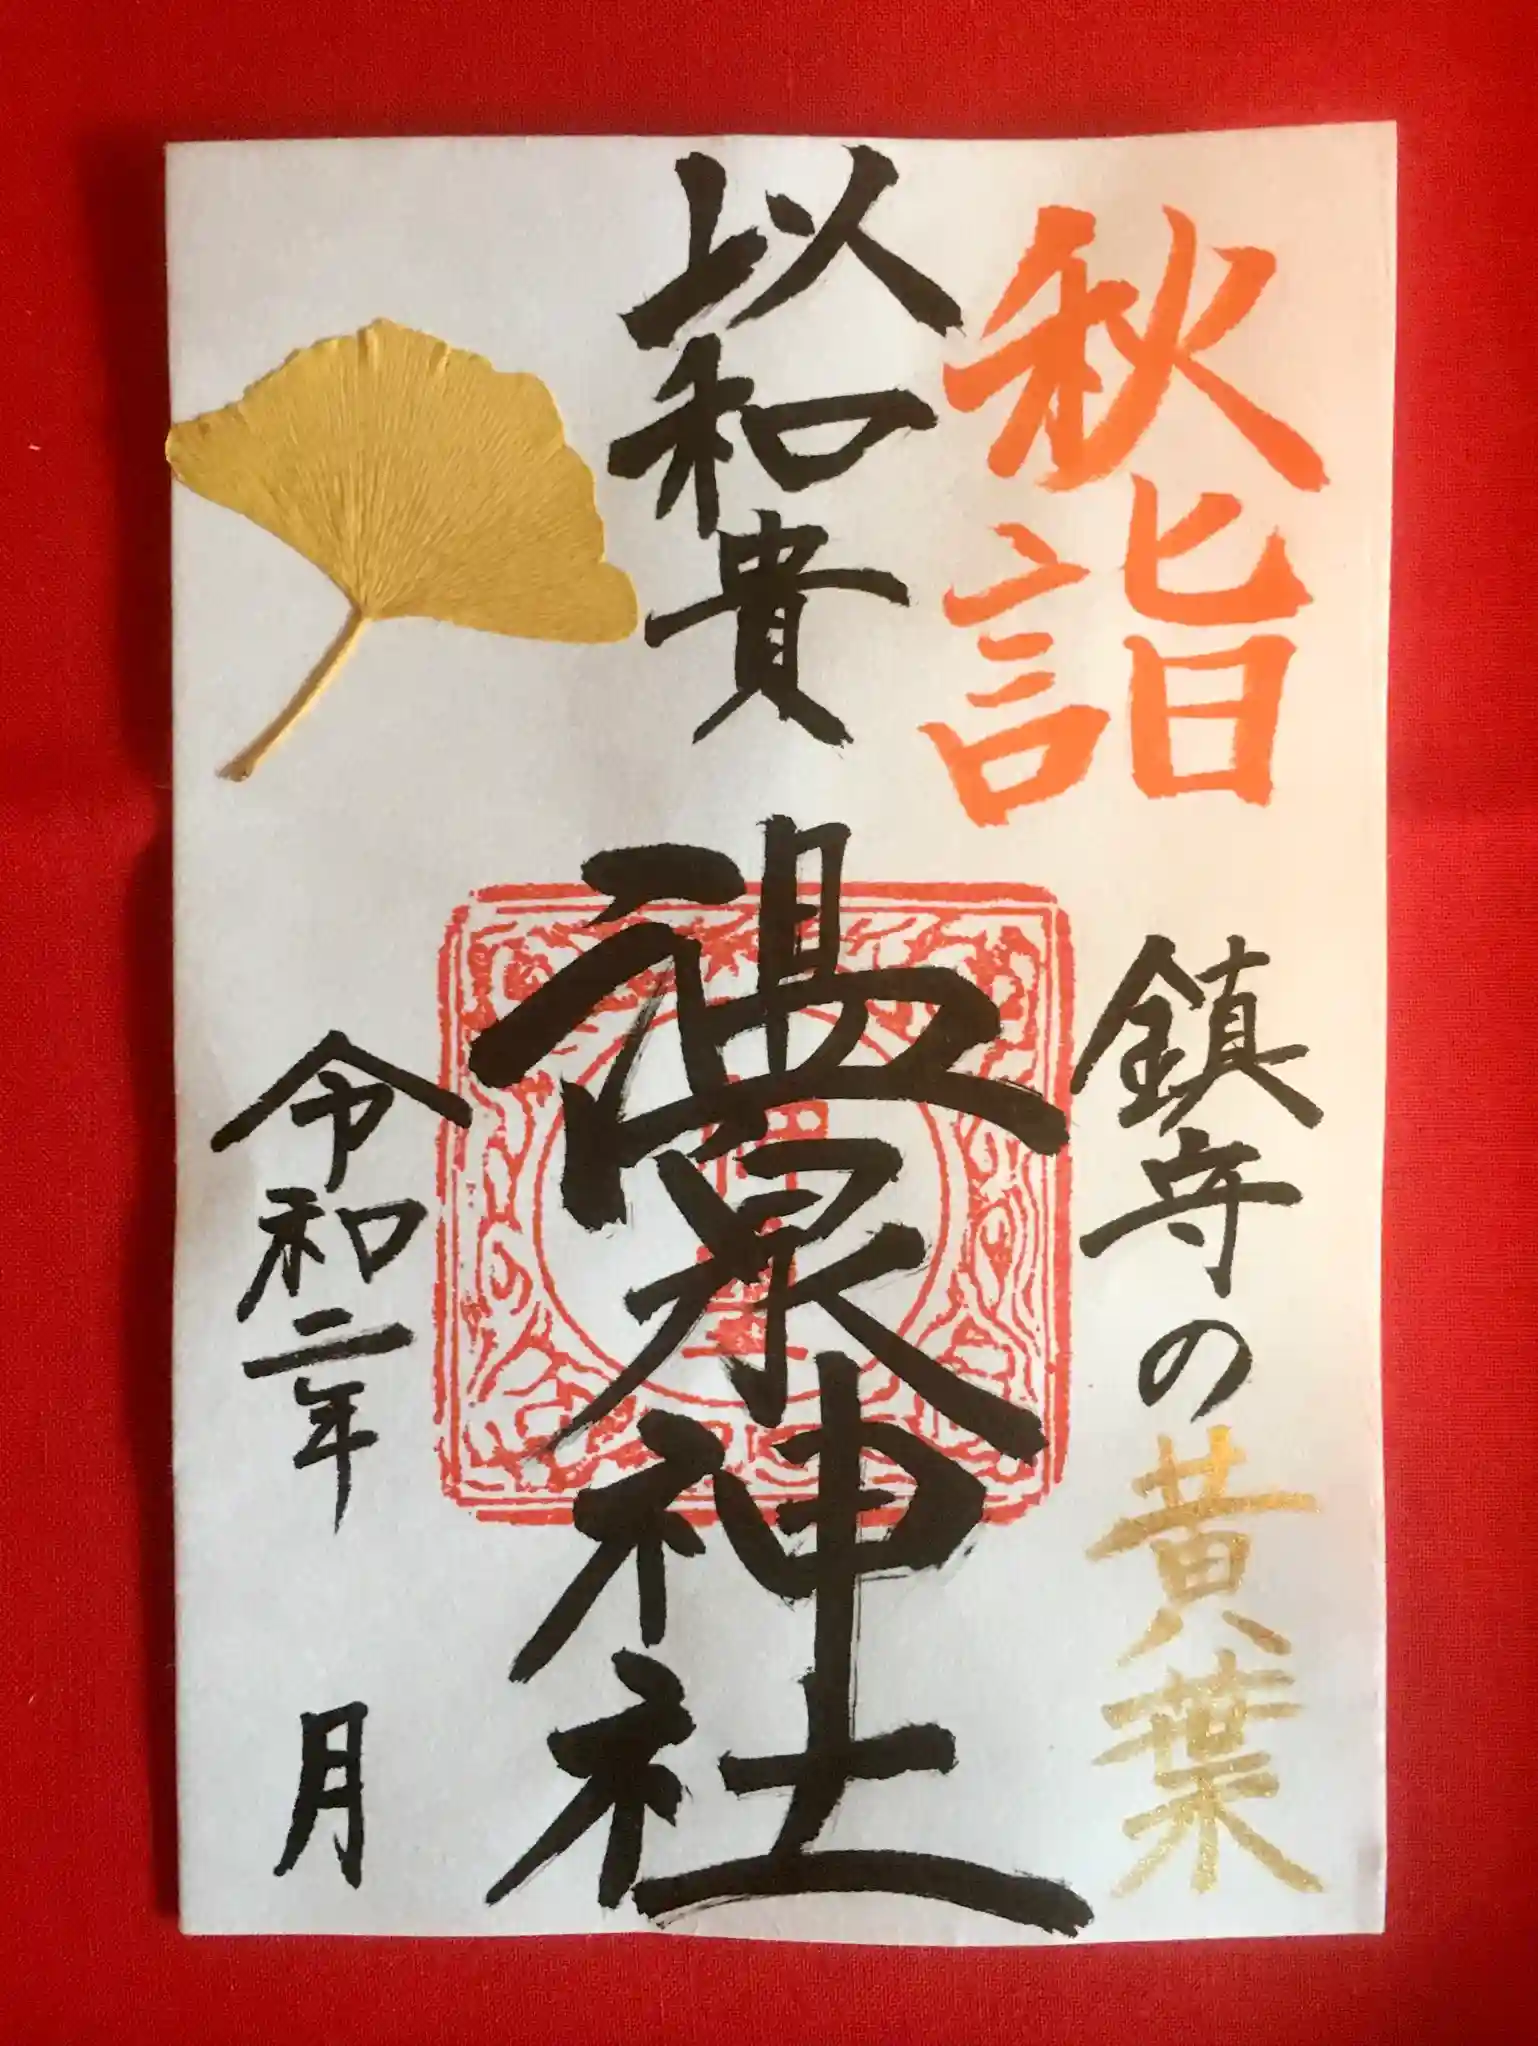 秋詣
鎮守の黄葉
以和貴
温泉神社
令和二年 月